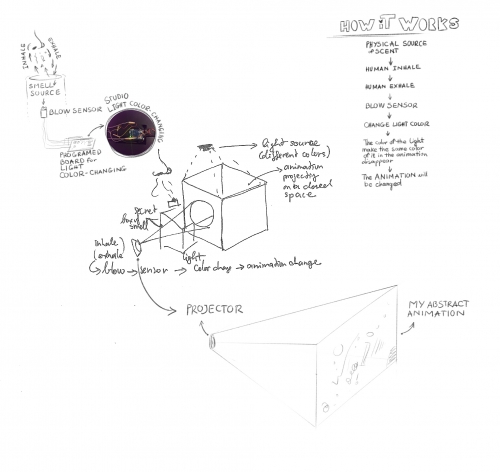 HOW iT WORKS
PHYSICAL SOURCE
SCENT
HUMAN INHALE
HUMAN EXHALE
BLOW SENSOR
CHANGE LIGHT COLOR
The color of the light
make the same color
of it in the animation
disappear
The ANIMATION will
be changed
INHALE
EXHALE
SMELL
SOURCE
BLOW SENSOR
STUDIO
LIGHT COLOR-CHANGING
PROGRAMED
BOARD for
LIGHT
COLOR-CHANGING
light source
(different colors)
animation
projecting
in a closed
space
secret
box of
smell
inhale
exhale
light
blow → sensor → Color chang → animation change
PROJECTOR
MY ABSTRACT
ANIMATION